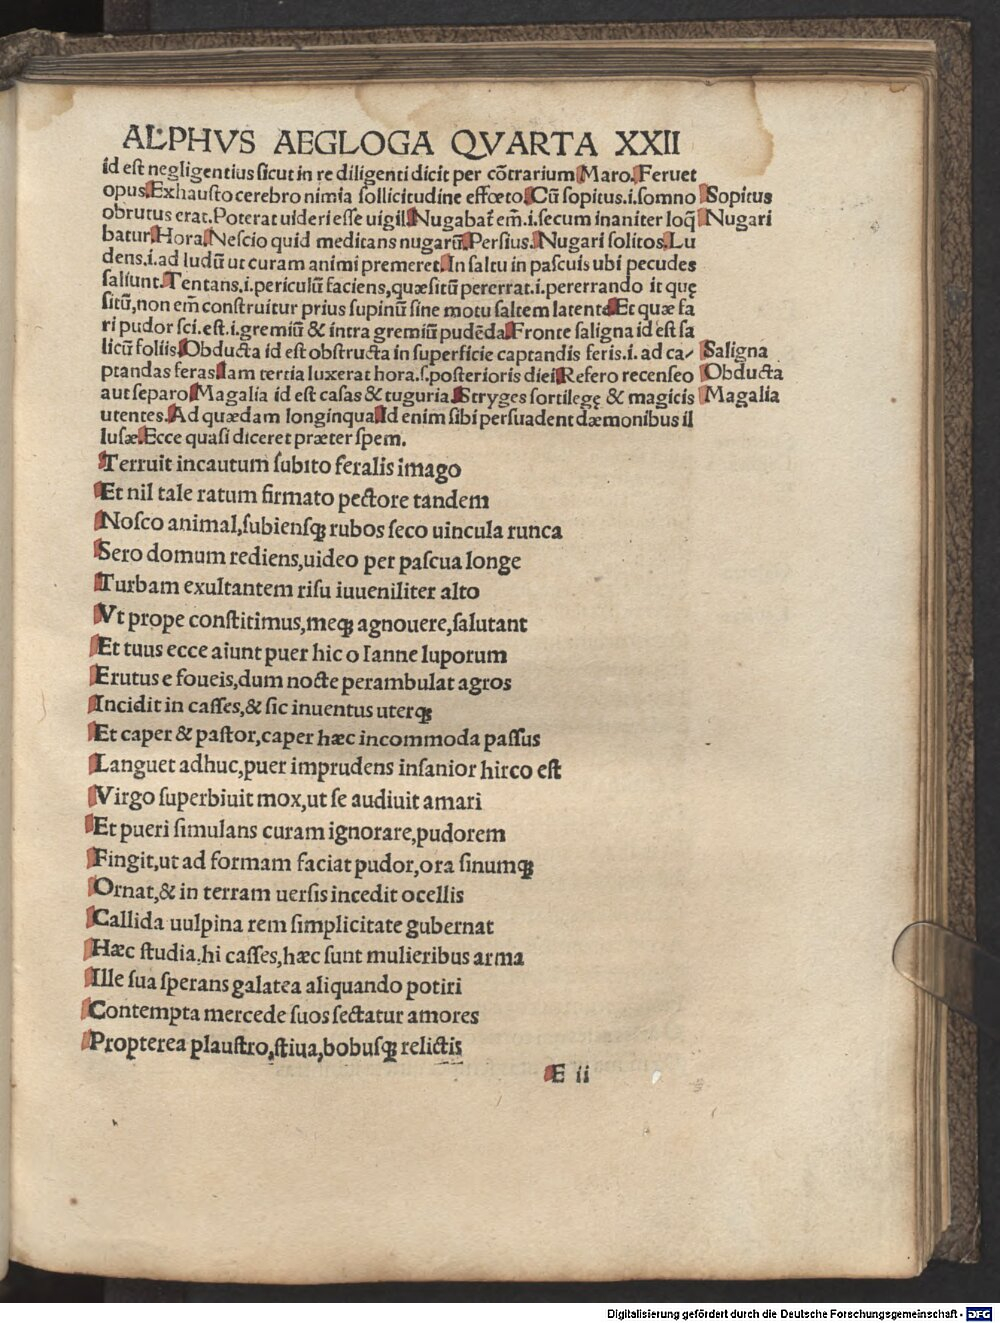 ALPHVS AEGLOGA QVARTA XXII
id est negligentius sicut in re diligenti dicit per cõtrarium Maro. Feruet
opus. Exhausto cerebro nimia sollicitudine effœto. Cũ sopitus.i.somno
Sopitus
obrutus erat. Poterat uideri esse uigil. Nugabat̃ em̃.i.secum inaniter loq̃
Nugari
batur. Hora. Nescio quid meditans nugarũ. Persius. Nugari solitos. Lu
dens.i.ad ludũ ut curam animi premeret. In saltu in pascuis ubi pecudes
saliunt. Tentans.i.periculũ faciens, quæsitũ pererrat.i.pererrando it quę
situ, non em̃ construitur prius supinũ sine motu saltem latente. Et quæ fa
ri pudor sci.est.i.gremiũ & intra gremiũ pudẽda. Fronte saligna id est sa
licũ foliis. Obducta id est obstructa in superficie captandis feris.i. ad ca-
Saligna
ptandas feras. Iam tertia luxerat hora.s.posterioris diei. Refero recenseo
Obducta
aut separo. Magalia id est casas & tuguria. Stryges sortilegę & magicis
Magalia
utentes. Ad quædam longinqua. Id enim sibi persuadent dæmonibus il
lusæ. Ecce quasi diceret præter spem.
Terruit incautum subito feralis imago
Et nil tale ratum firmato pectore tandem
Nosco animal, subiensqꝫ rubos seco uincula runca
Sero domum rediens, uideo per pascua longe
Turbam exultantem risu iuueniliter alto
Vt prope constitimus, meqꝫ agnouere, salutant
Et tuus ecce aiunt puer hic o Ianne luporum
Erutus e foueis, dum nocte perambulat agros
Incidit in casses, & sic inuentus uterqꝫ
Et caper & pastor, caper hæc incommoda passus
Languet adhuc, puer imprudens insanior hirco est
Virgo superbiuit mox, ut se audiuit amari
Et pueri simulans curam ignorare, pudorem
Fingit, ut ad formam faciat pudor, ora sinumqꝫ
Ornat, & in terram uersis incedit ocellis
Callida uulpina rem simplicitate gubernat
Hæc studia, hi casses, hæc sunt mulieribus arma
Ille sua sperans galatea aliquando potiri
Contempta mercede suos sectatur amores
Propterea plaustro, stiua, bobusqꝫ relictis
E ii
Digitalisierung gefördert durch die Deutsche Forschungsgemeinschaft - DFG